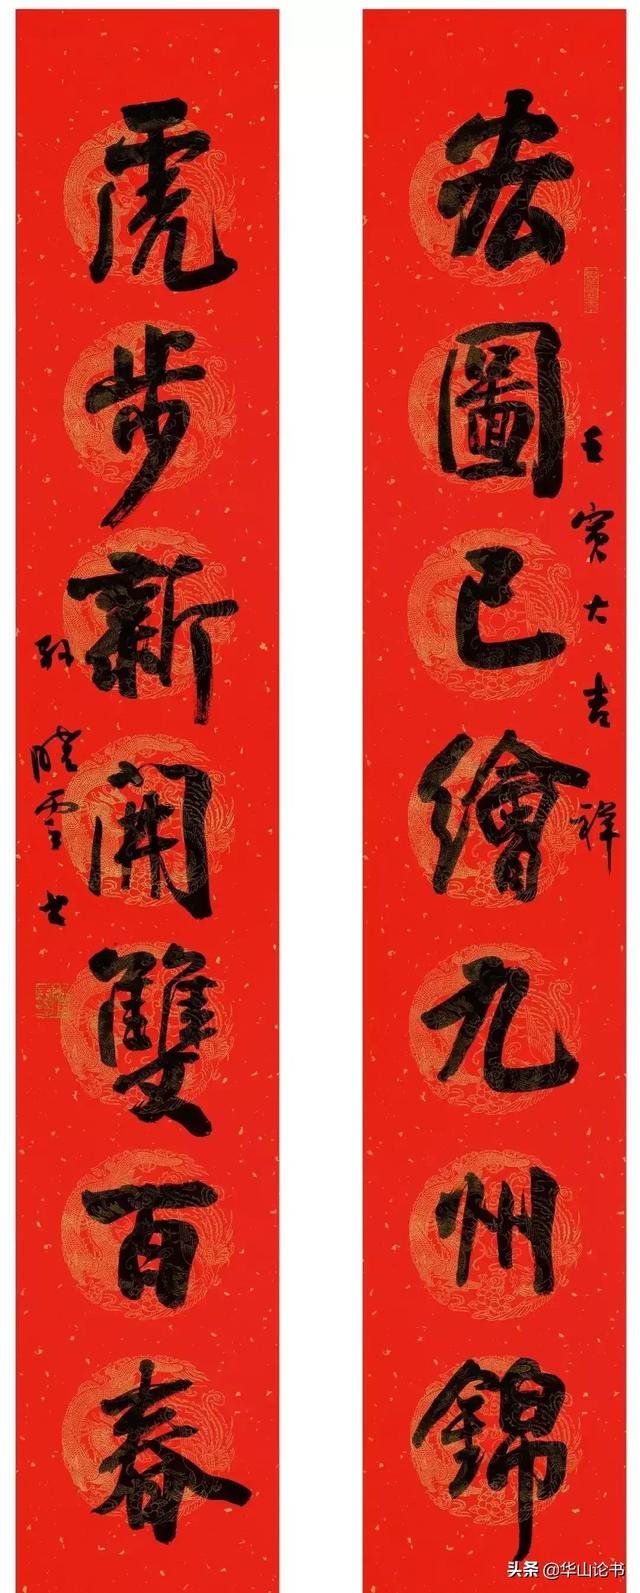 宏圖已繪九州錦
壬寅大吉祥
虎步新開雙百春
孫曉雲書
头条 @华山论书